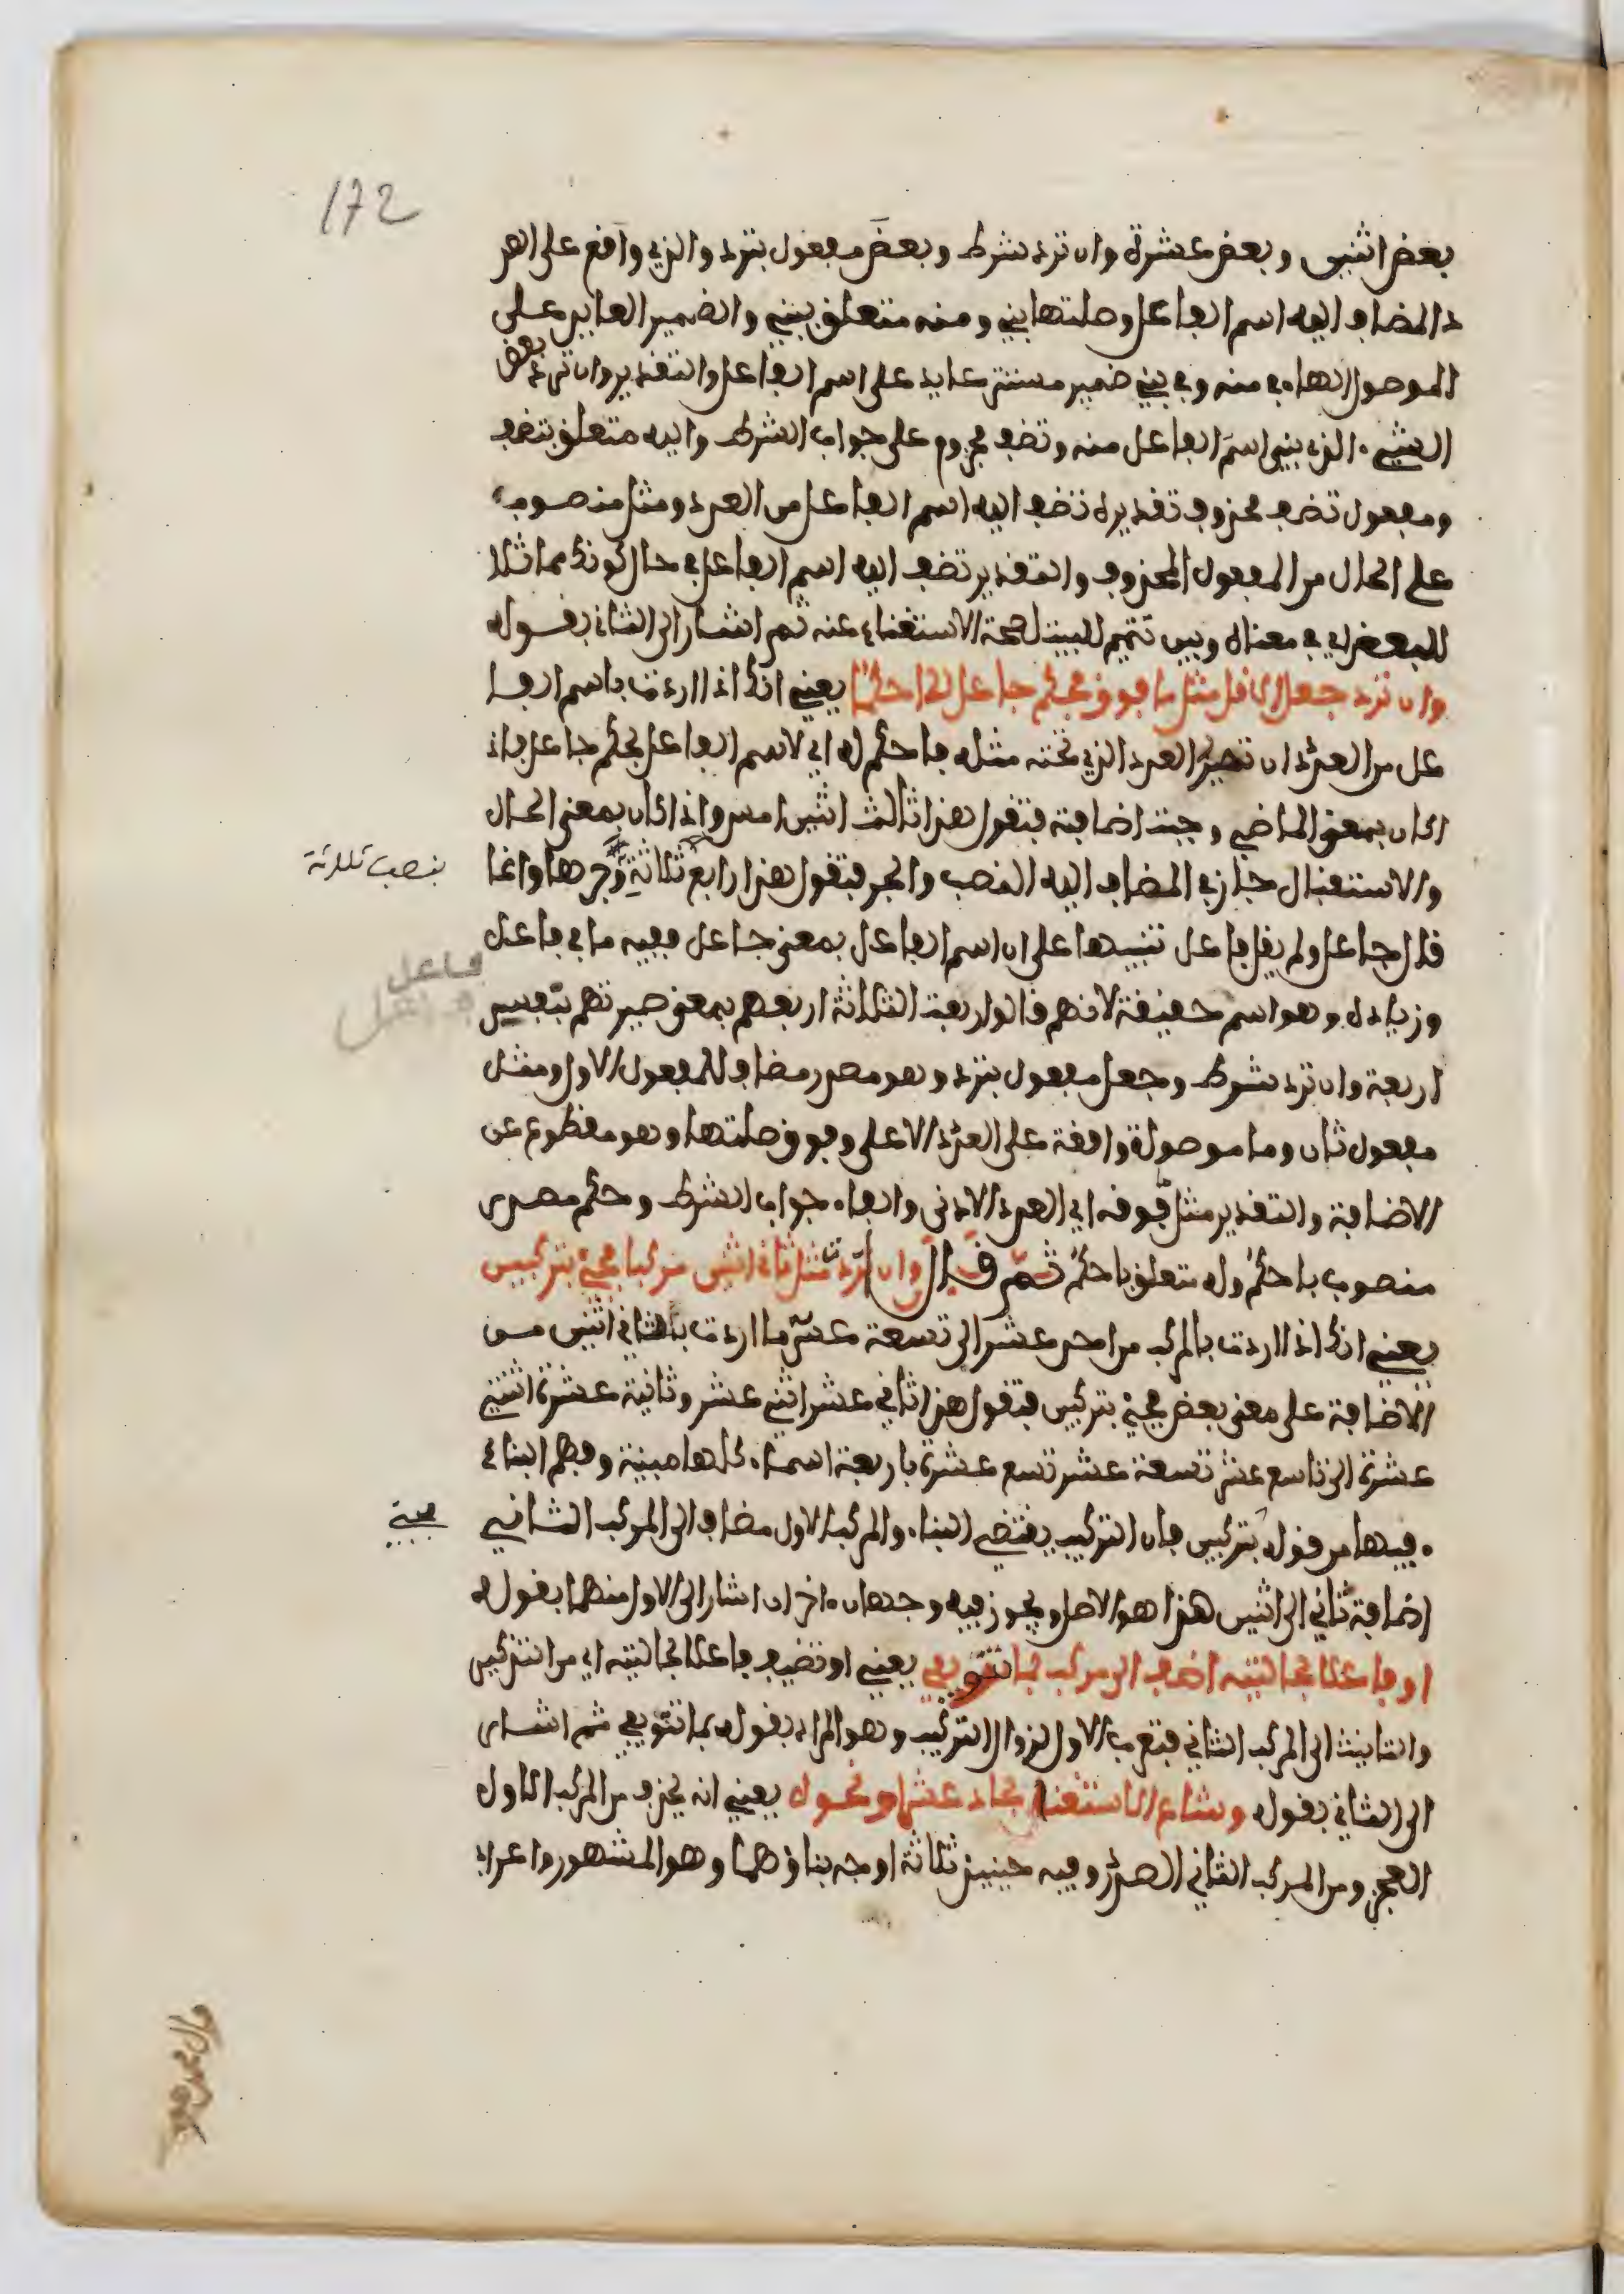 172
بعض اثنين وبعض عشرة وان ترد شرط وبعض مفعول بترد والذي واقع على العد
د المضاف اليه اسم الفاعل وصلتها بني ومنه متعلق ببني والضمير العايد على
الموصول الهاء في منه وفي بني ضمير مستتر عايد على اسم الفاعل والتقدير وان ترد بعض
الشيء الذي بني اسم الفاعل منه وتضف مجزوم على جواب الشرط واليه متعلق بتضف
ومفعول تضف محذوف تقديره تضف اليه اسم الفاعل من العدد ومثل منصوب
على الحال من المفعول المحذوف والتقدير تضف اليه اسم الفاعل في حال كونك مماثلا
للبعض اي في معناه وبين تتميم للبيت لصحة الاستغناء عنه ثم اشار الى الثاني بقوله
وان ترد جعل الاقل مثل ما فوق فحكم جاعل له احكما يعني انك اذا اردت باسم الفا
عل من العدد ان تصير العدد الذي تحته مثله فاحكم له اي لاسم الفاعل بحكم جاعل فاذ
اكان بمعنى الماضي وجبت اضافته فتقول هذا ثالث اثنين امس واذا كان بمعنى الحال
والاستقبال جاز في المضاف اليه النصب والجر فتقول هذا رابع ثلاثة وجرها وانما
بنصب ثلاثة
قال جاعل ولم يقل فاعل تنبيها على ان اسم الفاعل بمعنى جاعل ففيه ما في فاعل
فاعل
وزيادة وهو اسم حقيقة لانهم قالوا ربعت الثلاثة اربعهم بمعنى صيرتهم بنفسي
اربعة وان ترد شرط وجعل مفعول بترد وهو مصدر مضاف للمفعول الاول ومثل
مفعول ثان وما موصولة واقعة على العدد الاعلى وفوق صلتها وهو مقطوع عن
الاضافة والتقدير مثل ما فوقه اي العدد الادنى والفاء جواب الشرط وحكم مصدر
منصوب باحكم وله متعلق باحكم ثم قال وان ترد مثل ثاني اثنين مركبا فجئ بتركيبين
يعني انك اذا اردت بالمركب من احد عشر الى تسعة عشر ما اردت بثاني اثنين من
الاضافة على معنى بعض فجئ بتركيبين فتقول هذا ثاني عشر اثني عشر وثانية عشرة اثنتي
عشرة الى تاسع عشر تسعة عشر تسع عشرة باربعة اسماء كلها مبنية وفهم البناء
فيها من قوله بتركيبين فان التركيب يقتضي البناء والمركب الاول مضاف الى المركب الثاني
اضافة ثاني الى اثنين هذا هو الاصل ويجوز فيه وجهان اخران اشار الى الاول منهما بقوله
او فاعلا بحالتيه اضف الى مركب بما تنوي يفي يعني او تضيف فاعلا بحالتيه اي من التذكير
والتانيث الى المركب الثاني فتعرب الاول لزوال التركيب وهو المراد بقوله بما تنوي يفي ثم اشار
الى الثاني بقوله وشاع الاستغنا بحاد عشرا ونحوه يعني انه يحذف من المركب الاول
العجز ومن المركب الثاني الصدر وفيه حينئذ ثلاثة اوجه بناؤهما وهو المشهور واعراب